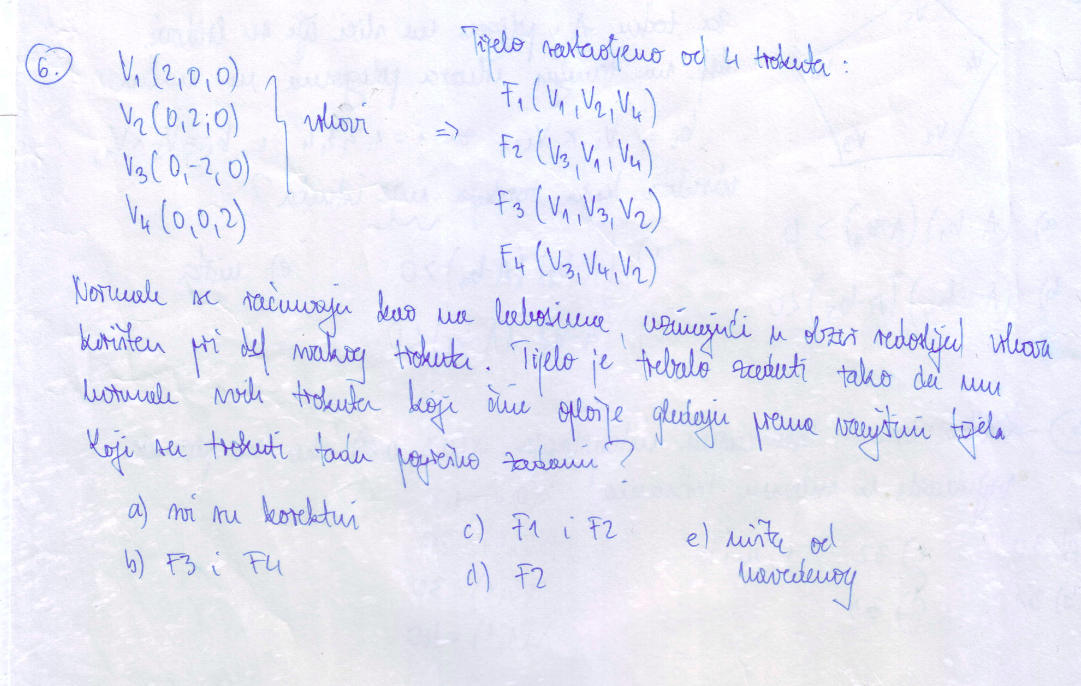 6.
V1 (2,0,0)
V2 (0,2,0)
V3 (0,-2,0)
V4 (0,0,2)
vrhovi
=>
Tijelo sastavljeno od 4 trokuta:
F1 (V1, V2, V4)
F2 (V3, V1, V4)
F3 (V1, V3, V2)
F4 (V3, V4, V2)
Normale se računaju kao na labosima, uzimajući u obzir redoslijed vrhova
korišten pri def svakog trokuta. Tijelo je trebalo zadati tako da mu
normale svih trokuta koji čine oplošje gledaju prema vanjštini tijela
Koji su trokuti tada pogrešno zadani?
a) svi su korektni
b) F3 i F4
c) F1 i F2
d) F2
e) ništa od
navedenog